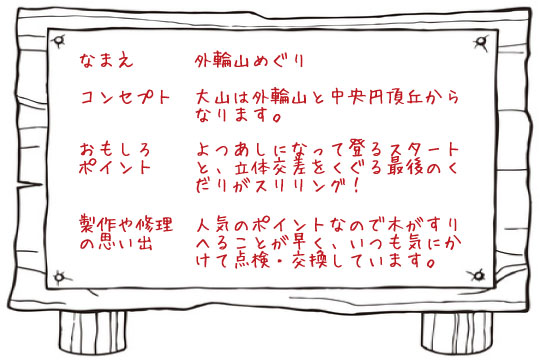 なまえ 外輪山めぐり
コンセプト 大山は外輪山と中央円頂丘から
なります。
おもしろ よつあしになって登るスタート
ポイント と、立体交差をくぐる最後のく
だりがスリリング!
製作や修理 人気のポイントなので木がすり
の思い出 へることが早く、いつも気にか
けて点検・交換しています。